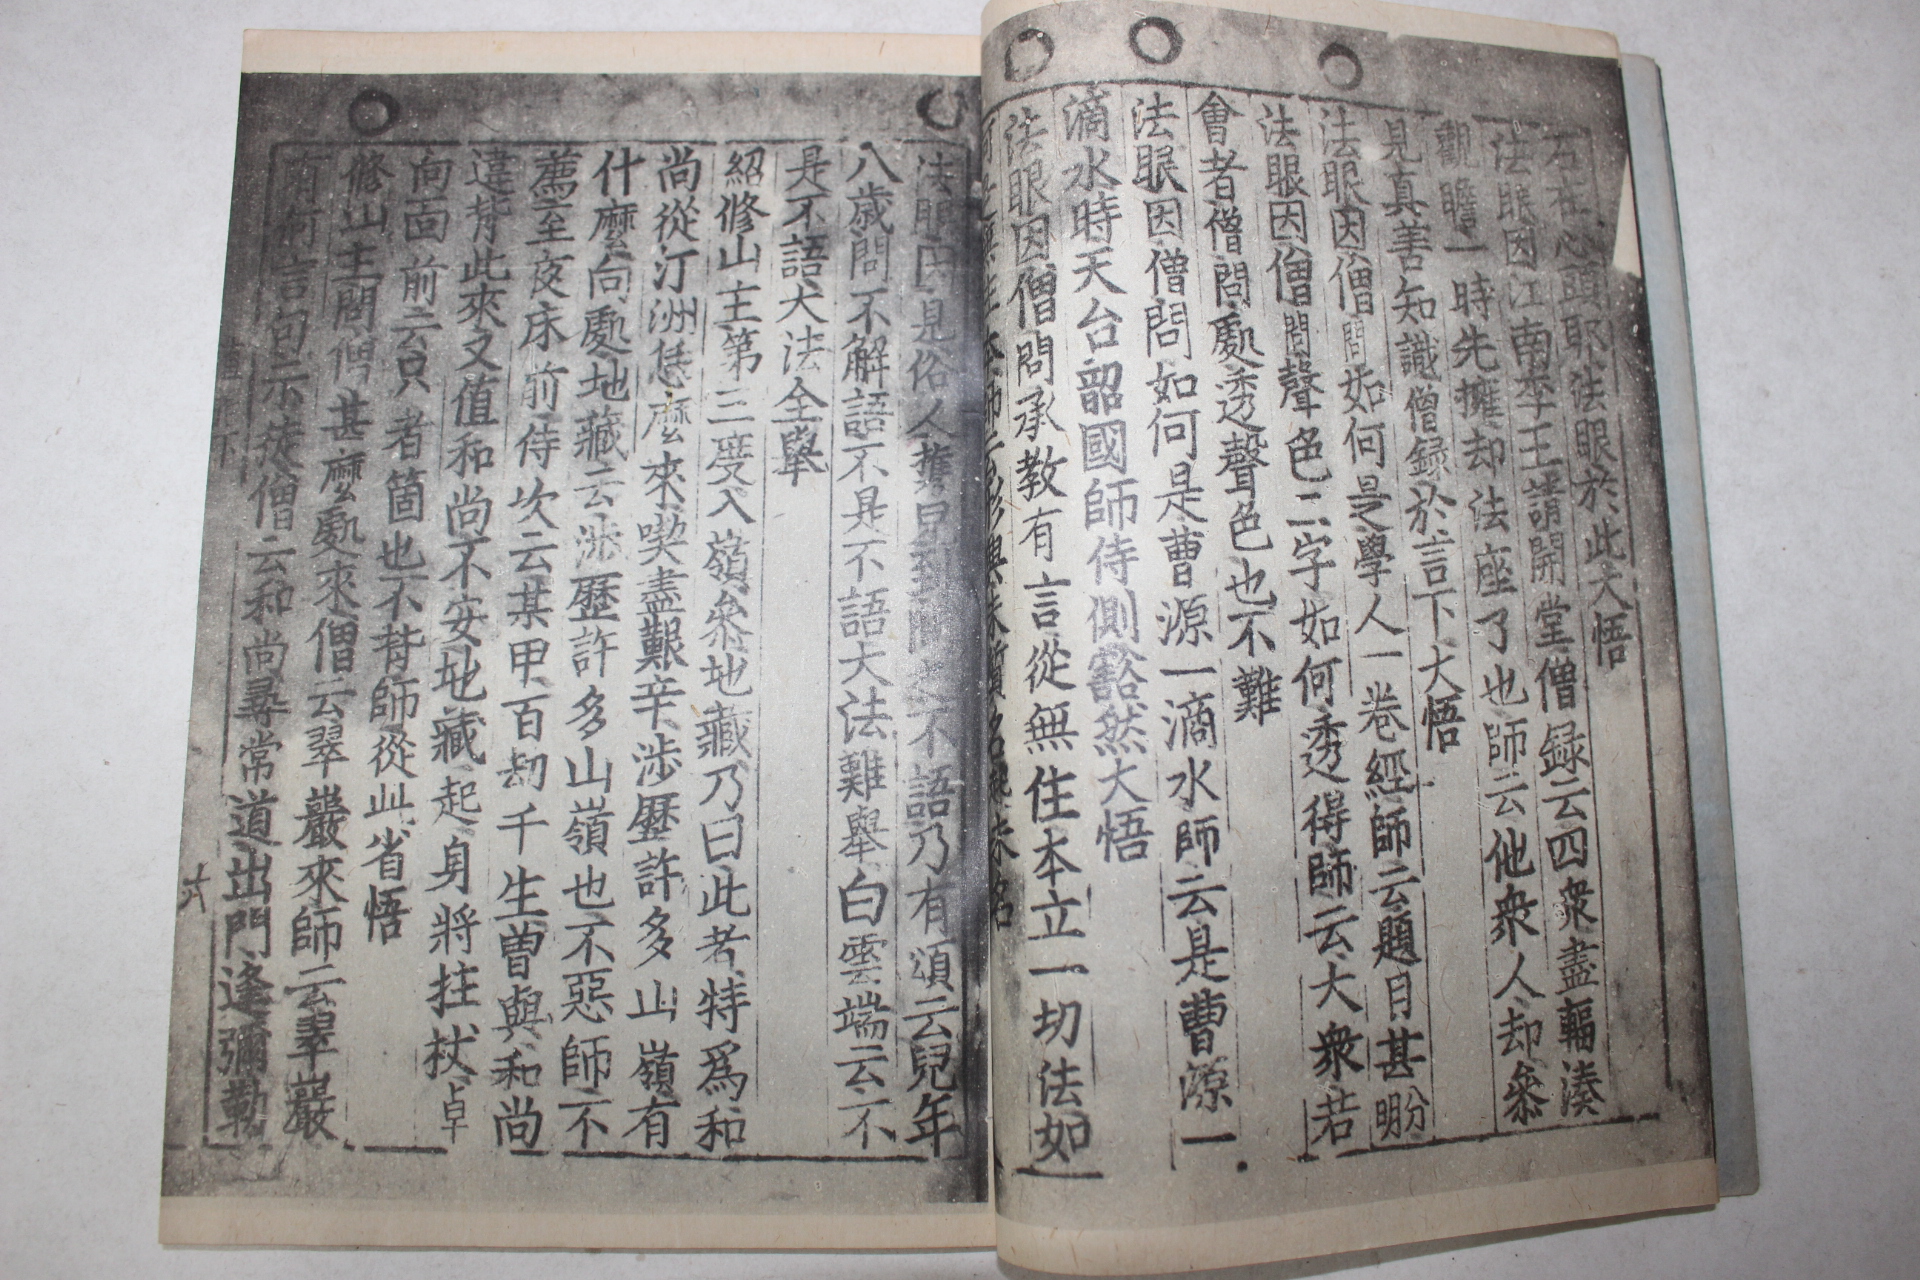 石在心頭耶法眼於此大悟
法眼因江南李王請開堂僧録云四衆盡輻湊
觀瞻一時先擁却法座了也師云他衆人却叅
見真善知識僧録於言下大悟
法眼因僧問如何是學人一卷經師云題目甚分明
法眼因僧問聲色二字如何透得師云大衆若
會者僧問處透聲色也不難
法眼因僧問如何是曹源一滴水師云是曹源一
滴水時天台韶國師侍側豁然大悟
法眼因僧問承教有言從無住本立一切法如
法眼因見俗人 不語乃有頌云兒年
八歲問不解語不是不語大法難舉白雲端云不
是不語大法全舉
紹修山主第三度入嶺叅地藏乃曰此者特爲和
尚從汀洲恁麽來喫盡艱辛涉歷許多山嶺有
什麽向處地藏云涉歷許多山嶺也不惡師不
薦至夜床前侍次云某甲百劫千生曽與和尚
違背此來又值和尚不安地藏起身將拄杖卓
向面前云只者箇也不背師從此省悟
修山主問僧甚麽處來僧云翠巖來師云翠巖
有何言句示徒僧云和尚尋常道出門逢彌勒